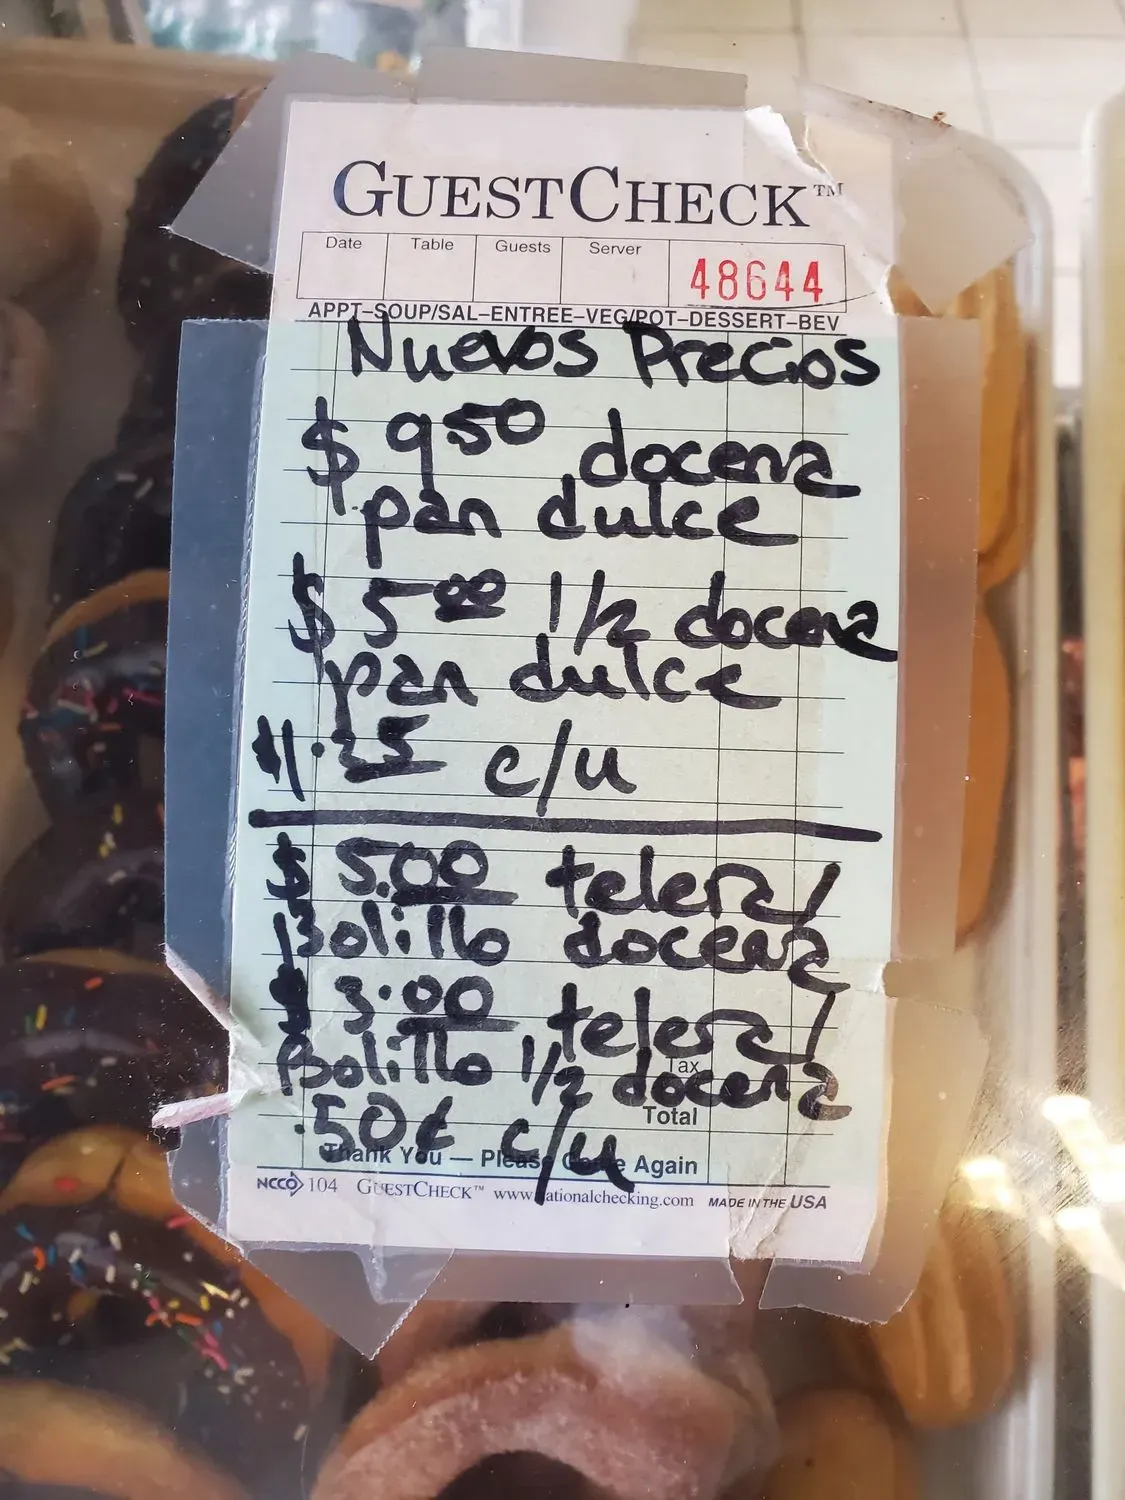 GUESTCHECK™
Date Table Guests Server
48644
APPT–SOUP/SAL–ENTREE–VEG/POT–DESSERT–BEV
Nuevos Precios
$ 950 docena
pan dulce
$ 5.00 1/2 docena
pan dulce
$1.25 c/u
$ 5.00 telera/
Bolillo docena
$ 3.00 telera/
Bolillo 1/2 docena
Tax
.50¢ c/u
Total
Thank You — Please Come Again
NCCO 104 GUESTCHECK™ www.nationalchecking.com MADE IN THE USA